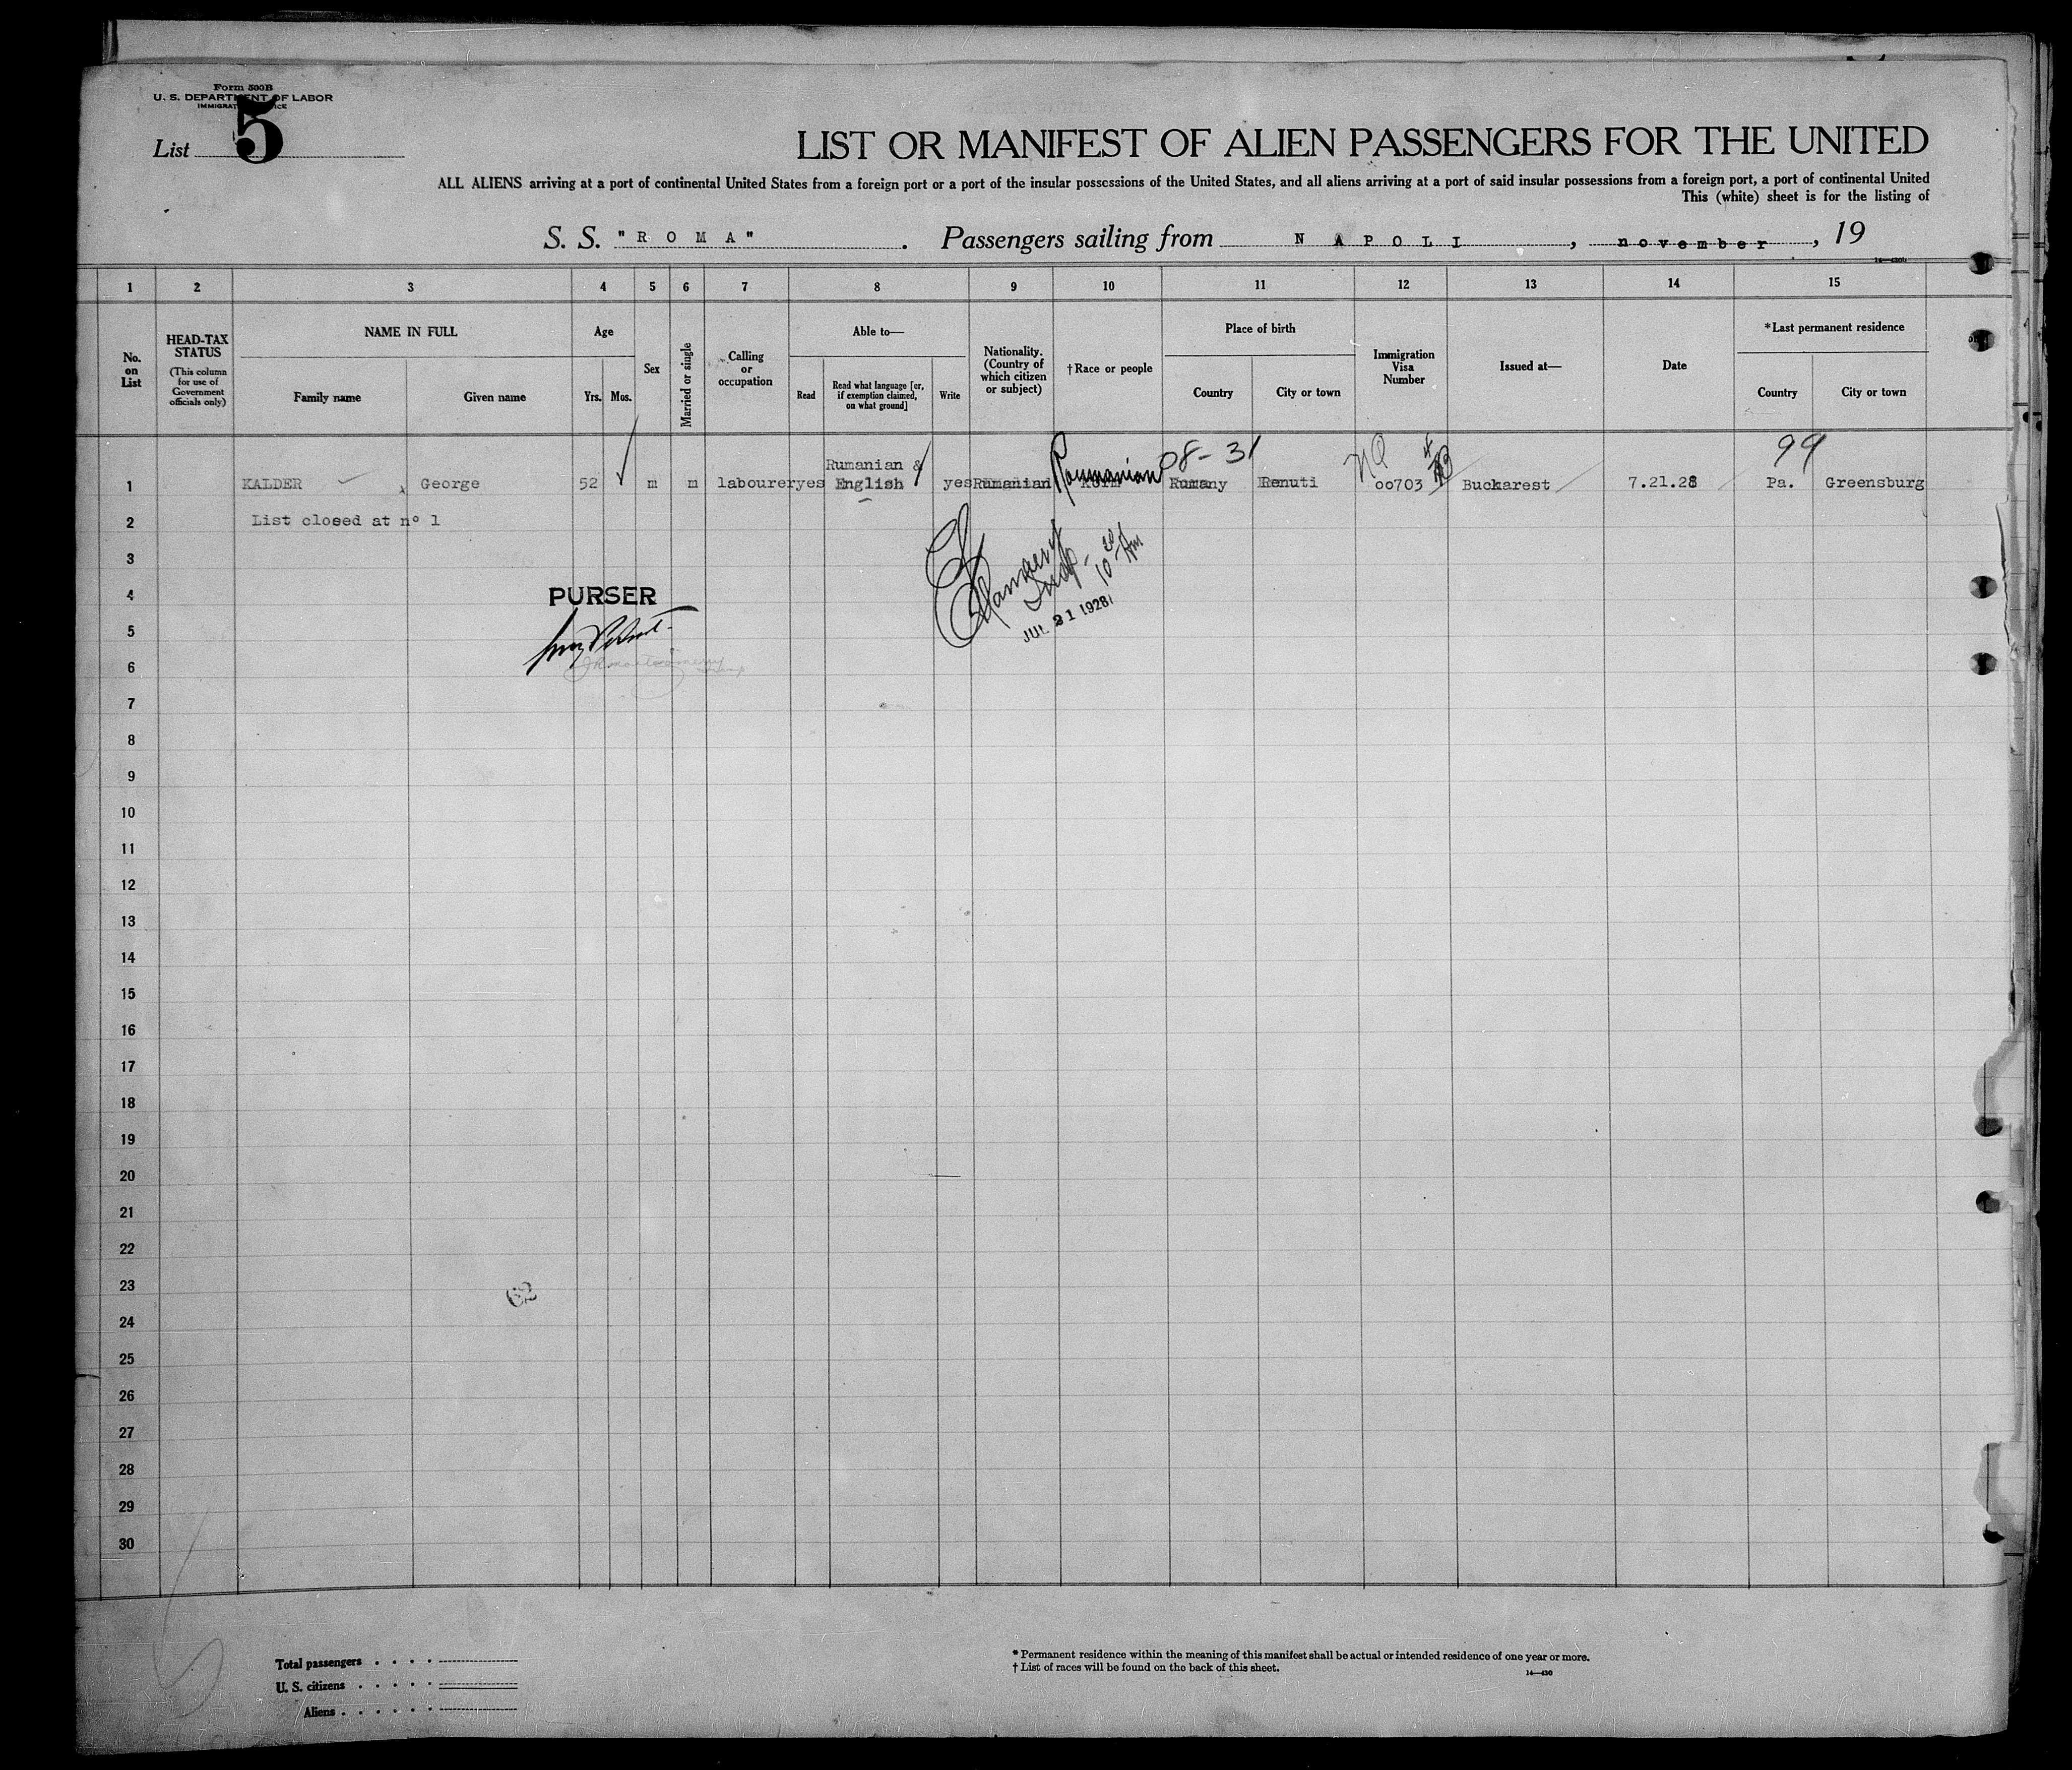 Form 500B
U. S. DEPARTMENT OF LABOR
List 5
LIST OR MANIFEST OF ALIEN PASSENGERS FOR THE UNITED
ALL ALIENS arriving at a port of continental United States from a foreign port or a port of the insular possessions of the United States, and all aliens arriving at a port of said insular possessions from a foreign port, a port of continental United
This (white) sheet is for the listing of
S. S. "ROMA". Passengers sailing from NAPOLI, november, 19
1 2 3 4 5 6 7 8 9 10 11 12 13 14 15
No. on List
HEAD-TAX STATUS
(This column for use of Government officials only)
NAME IN FULL
Family name
Given name
Age
Yrs.
Mos.
Sex
Married or single
Calling or occupation
Able to—
Read
Read what language [or, if exemption claimed, on what ground]
Write
Nationality. (Country of which citizen or subject)
†Race or people
Place of birth
Country
City or town
Immigration Visa Number
Issued at—
Date
*Last permanent residence
Country
City or town
08-31 NQ 99
1 KALDER George 52 m m labourer yes Rumanian & English yes Rumanian Roumanian Rumany 00703 Buckarest 7.21.28 Pa. Greensburg
2 List closed at nº 1
3
4
PURSER
JUL 21 1928
5
6
7
8
9
10
11
12
13
14
15
16
17
18
19
20
21
22
23
62
24
25
26
27
28
29
30
Total passengers
U. S. citizens
Aliens
* Permanent residence within the meaning of this manifest shall be actual or intended residence of one year or more.
† List of races will be found on the back of this sheet.
14—430